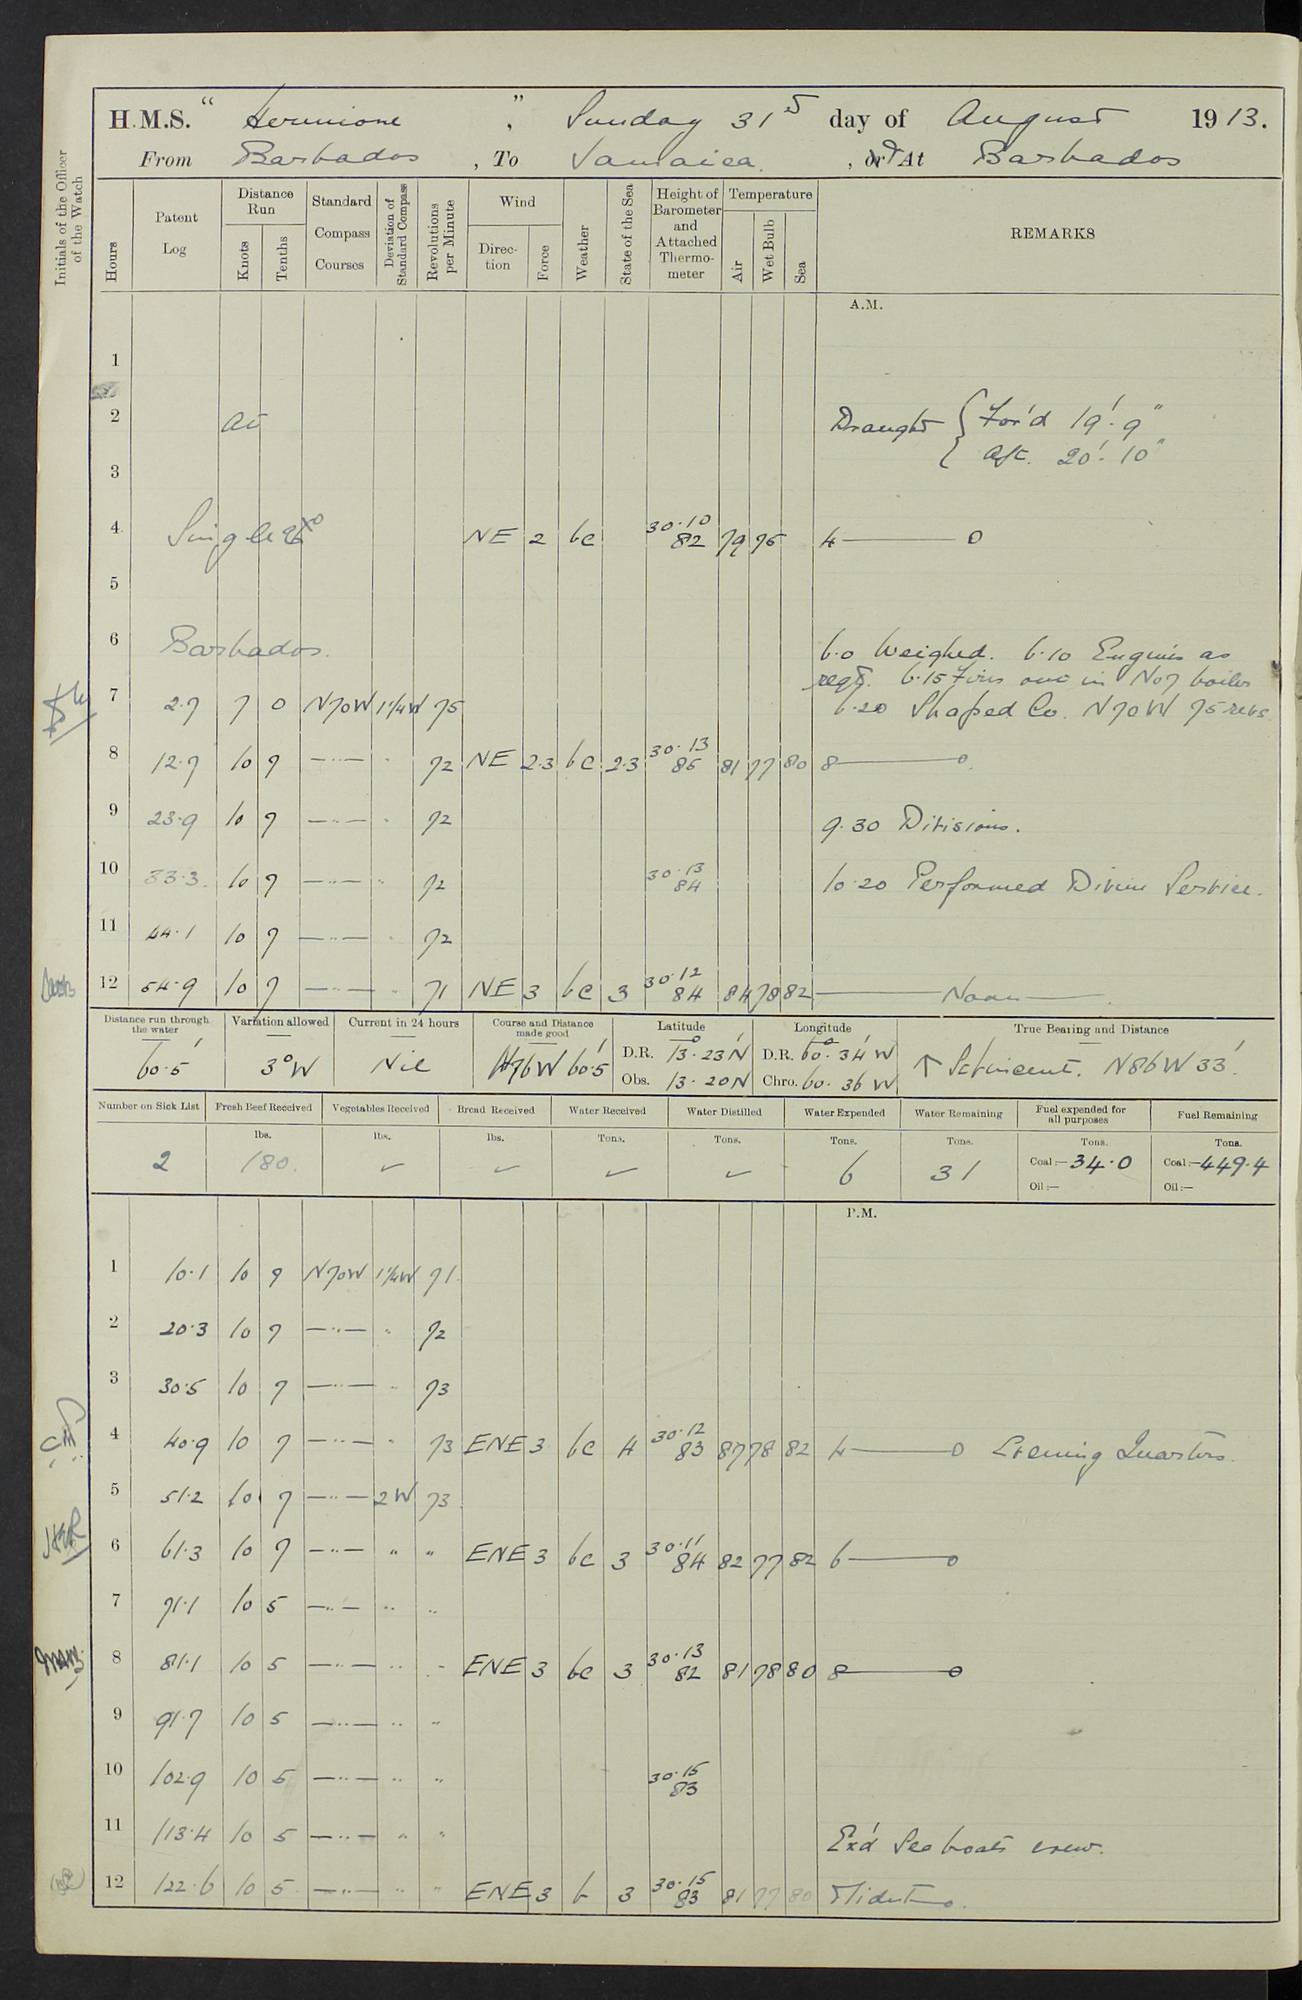 H.M.S. "Hermione", Sunday 31st day of August 1913.
From Barbados, To Jamaica, or At Barbados
Initials of the Officer of the Watch
Hours
Patent Log
Distance Run
Knots
Tenths
Standard Compass Courses
Deviation of Standard Compass
Revolutions per Minute
Wind
Direction
Force
Weather
State of the Sea
Height of Barometer and Attached Thermometer
Temperature
Air
Wet Bulb
Sea
REMARKS
A.M.
1
2 At Draught { For'd 19'. 9"
3 Aft. 20'. 10"
4 Single NE 2 bc 30.10 82 79 75 4 — 0
5
6 Barbados. 6.0 Weighed. 6.10 Engines as
reqd. 6.15 Fires out in No 7 boiler
7 2.7 7 0 N70W 1¼W 75 6.20 Shaped Co. N70W 75 revs
8 12.7 10 7 — " — " 72 NE 2.3 bc 2.3 30.13 85 81 77 80 8 — 0
9 23.9 10 7 — " — " 72 9.30 Divisions.
10 33.3 10 7 — " — " 72 30.13 84 10.20 Performed Divine Service.
11 44.1 10 7 — " — " 72
12 54.9 10 7 — " — " 71 NE 3 bc 3 30.12 84 84 78 82 — Noon —
Distance run through the water
60.5'
Variation allowed
3°W
Current in 24 hours
Nil
Course and Distance made good
N76W 60.5'
Latitude
D.R. 13°. 23'N
Obs. 13. 20N
Longitude
D.R. 60°. 34'W
Chro. 60. 36 W
True Bearing and Distance
↑ St Vincent. N86W 33'
Number on Sick List
2
Fresh Beef Received
lbs.
180.
Vegetables Received
lbs.
✓
Bread Received
lbs.
✓
Water Received
Tons.
✓
Water Distilled
Tons.
✓
Water Expended
Tons.
6
Water Remaining
Tons.
31
Fuel expended for all purposes
Tons.
Coal:— 34.0
Oil:—
Fuel Remaining
Tons.
Coal:— 449.4
Oil:—
P.M.
1 10.1 10 7 N70W 1¼W 71
2 20.3 10 7 — " — " 72
3 30.5 10 7 — " — " 73
4 40.9 10 7 — " — " 73 ENE 3 bc 4 30.12 83 87 78 82 4 — 0 Evening Quarters.
5 51.2 10 7 — " — 2W 73
6 61.3 10 7 — " — " " ENE 3 bc 3 30.11 84 82 77 82 6 — 0
7 71.1 10 5 — " — " "
8 81.1 10 5 — " — " " ENE 3 bc 3 30.13 82 81 78 80 8 — 0
9 91.7 10 5 — " — " "
10 102.9 10 5 — " — " " 30.15 83
11 113.4 10 5 — " — " " Ex'd Sea boats crew.
12 122.6 10 5 — " — " " ENE 3 b 3 30.15 83 81 77 80 Midnt